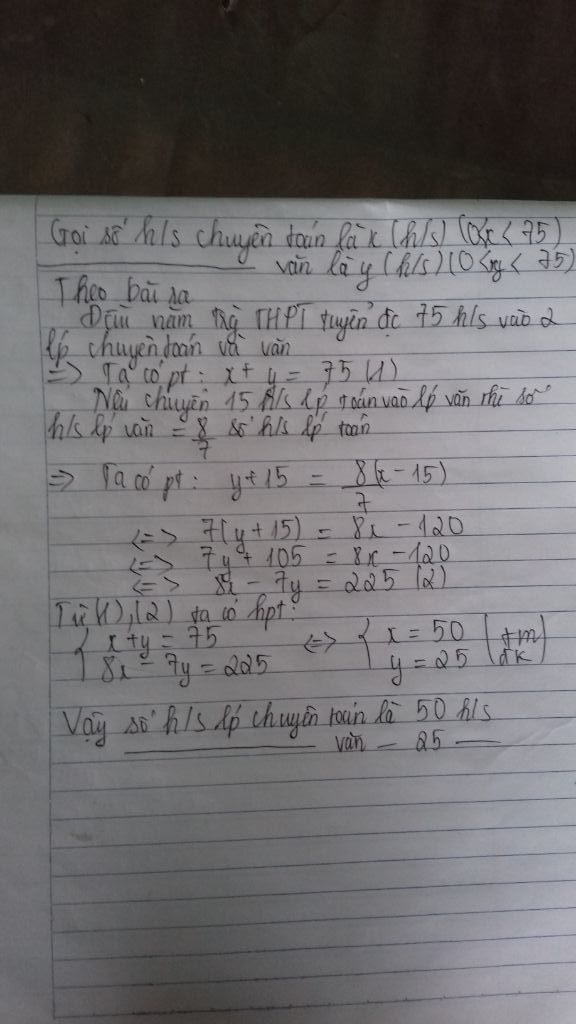 Gọi số h/s chuyên toán là x (h/s) (0<x < 75)
văn là y (h/s) (0<y < 75)
Theo bài ra
Đầu năm trg THPT tuyển đc 75 h/s vào 2
lp chuyên toán và văn
=> Ta có pt: x + y = 75 (1)
Nếu chuyển 15 h/s lp toán vào lp văn thì số
h/s lp văn = 8/7 số h/s lp toán
=> Ta có pt: y + 15 = 8(x - 15)/7
<=> 7(y + 15) = 8x - 120
<=> 7y + 105 = 8x - 120
<=> 8x - 7y = 225 (2)
Từ (1), (2) ta có hpt:
{ x + y = 75 <=> { x = 50 (tm
8x - 7y = 225 y = 25 đk)
Vậy số h/s lp chuyên toán là 50 h/s
văn — 25 —